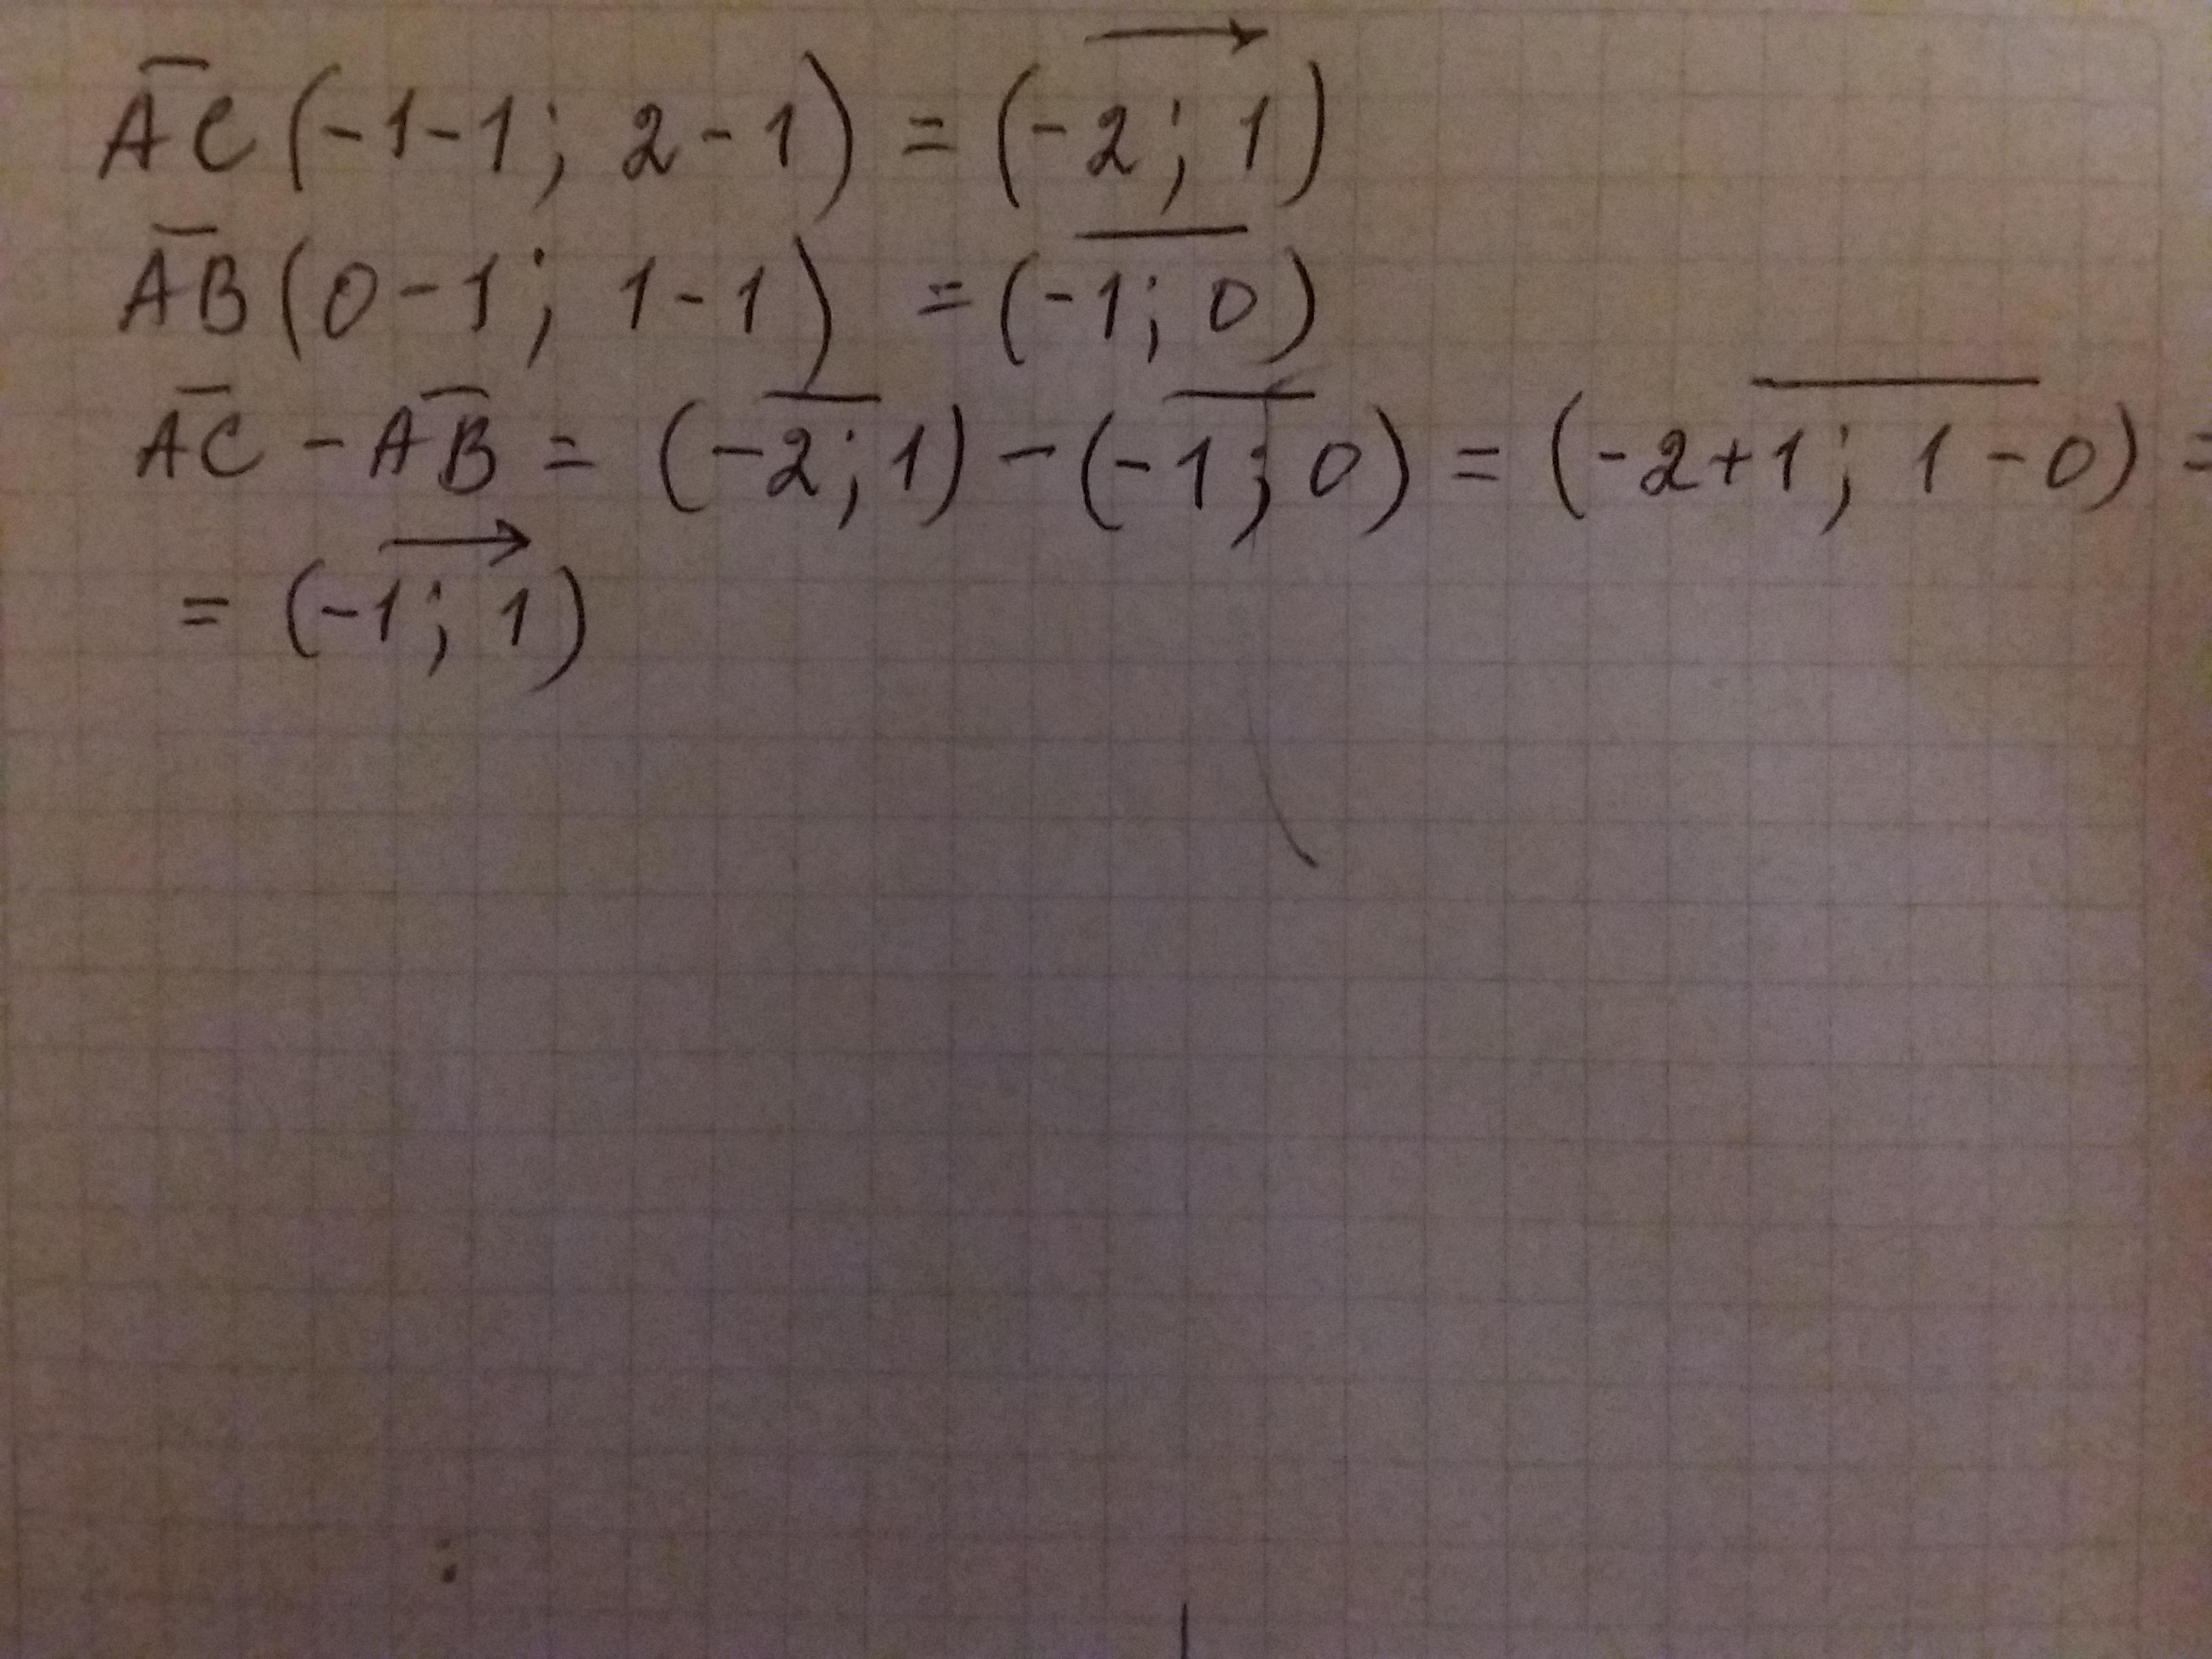 A̅C̅(-1-1; 2-1) = (-2; 1)
A̅B̅(0-1; 1-1) = (-1; 0)
A̅C̅ - A̅B̅ = (-2; 1) - (-1; 0) = (-2+1; 1-0) =
= (-1; 1)